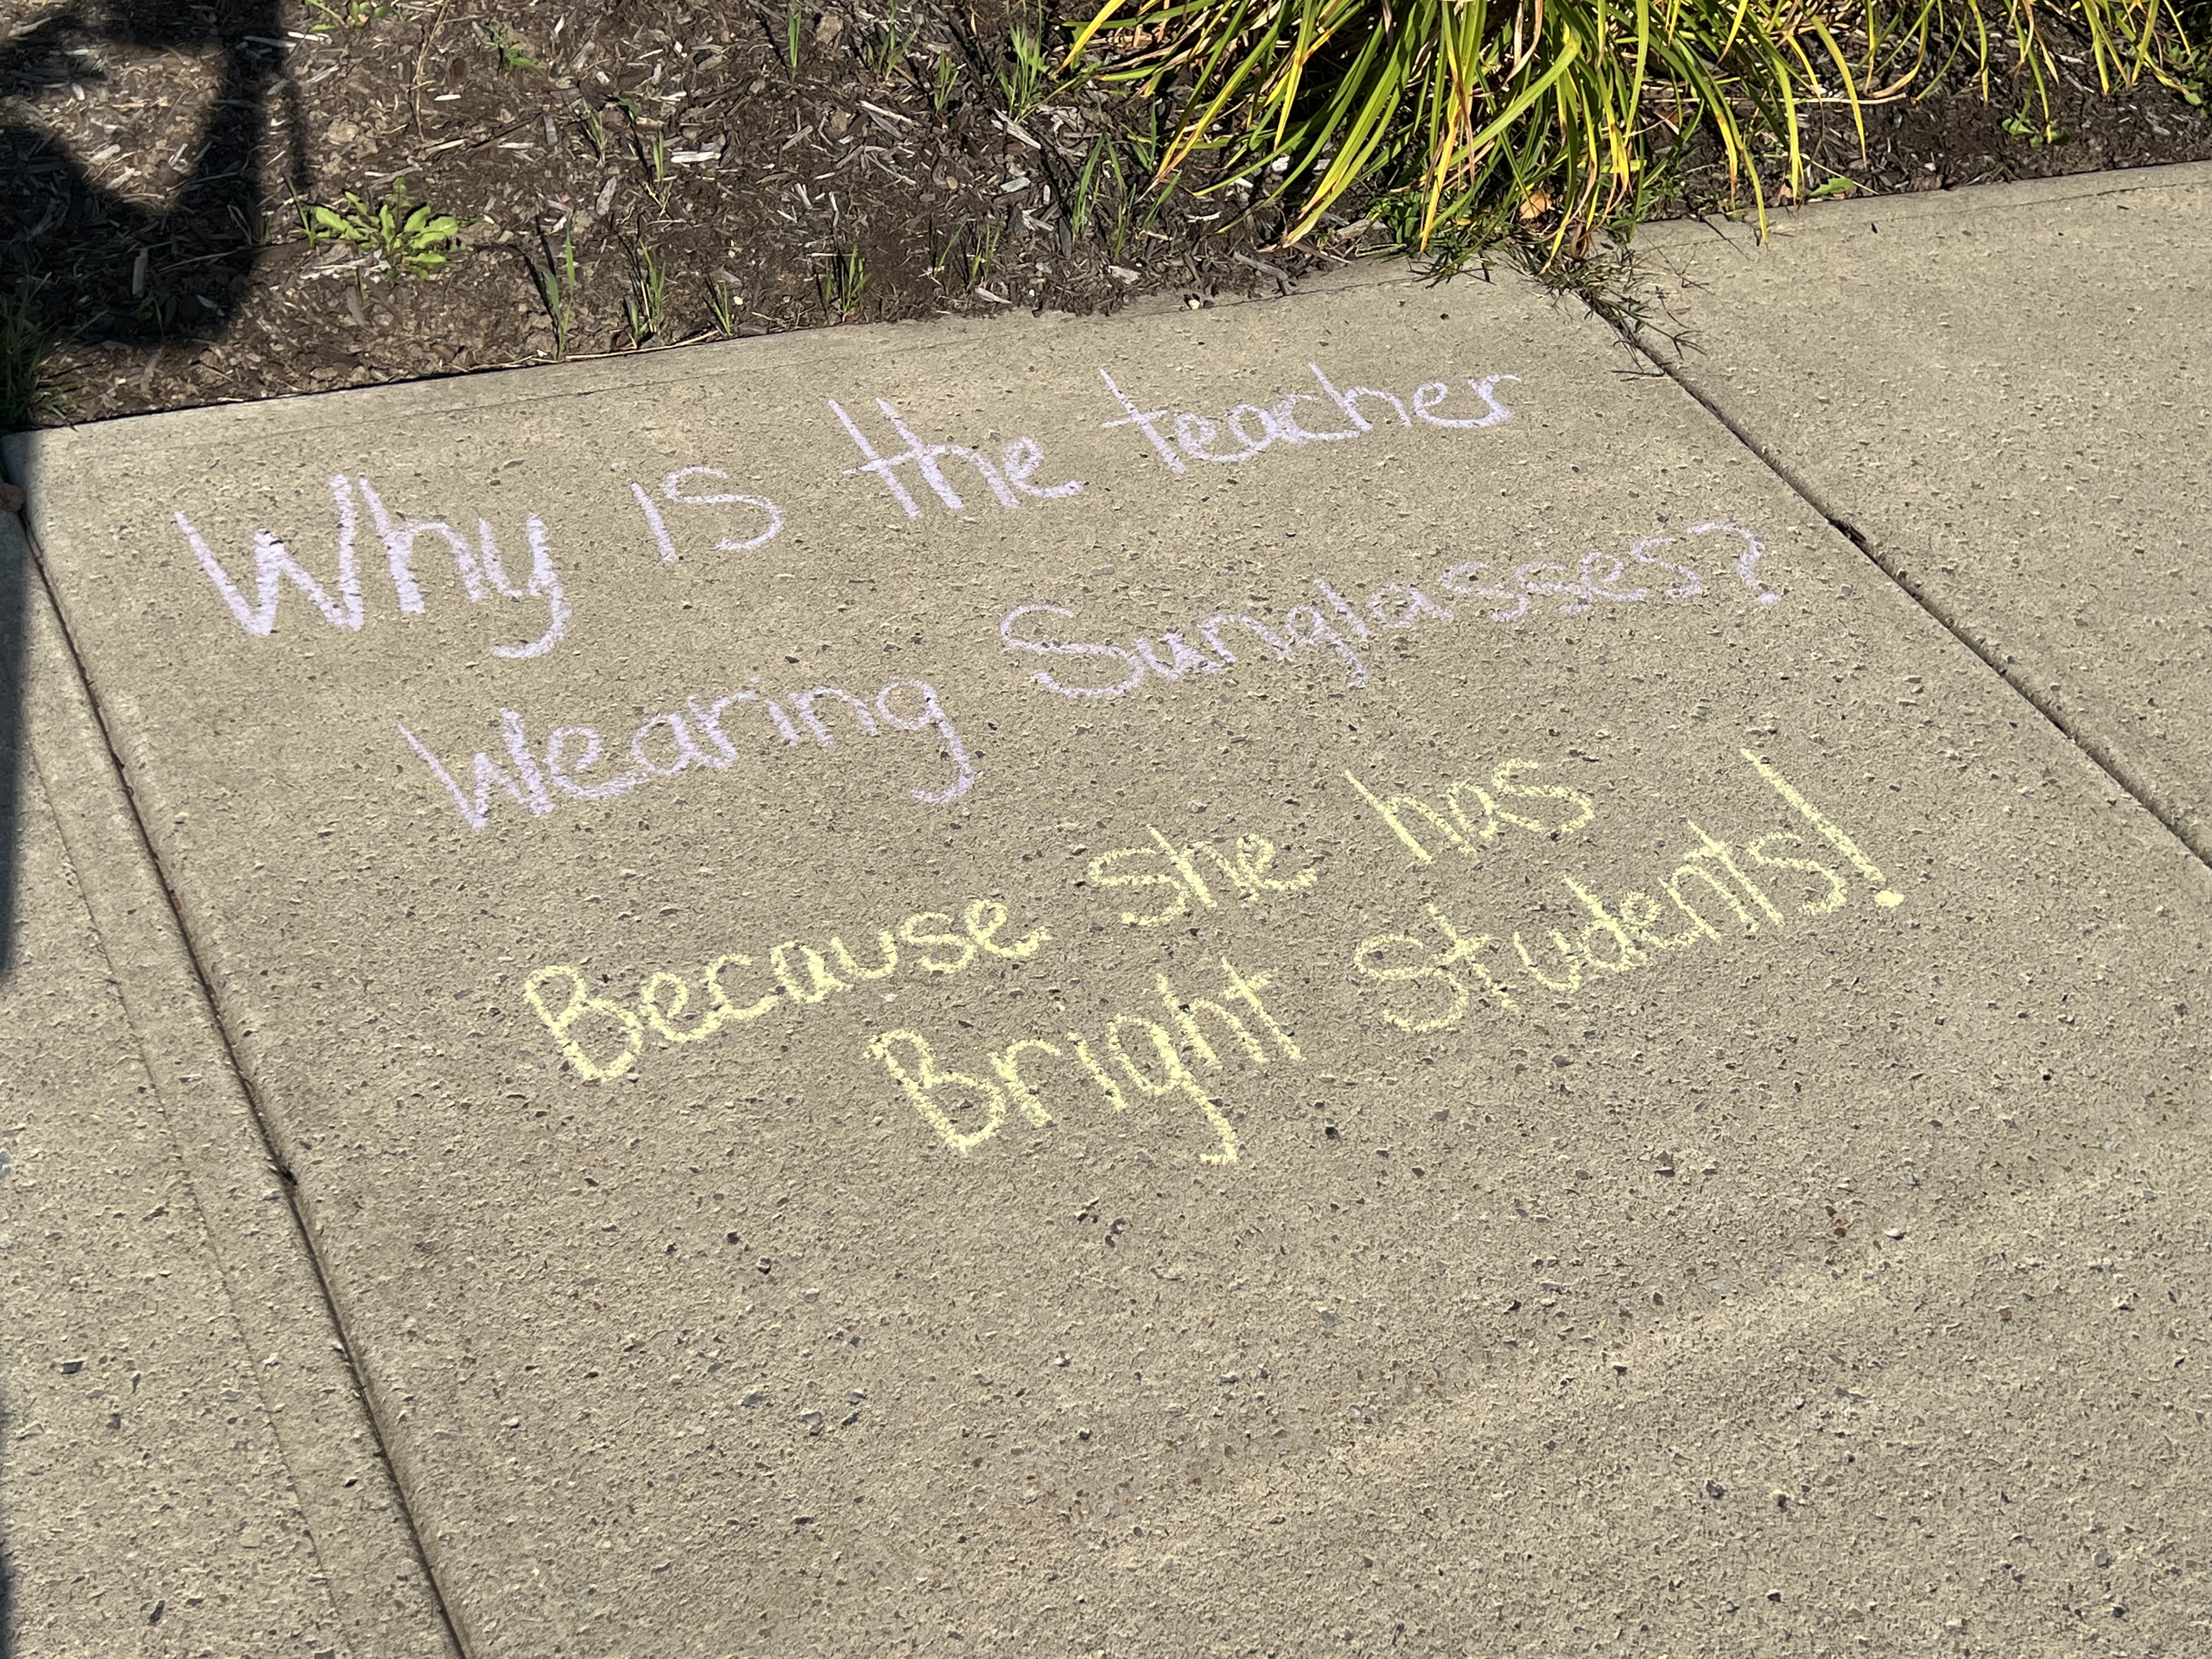 Why is the teacher
Wearing Sunglasses?
Because she has
Bright Students!